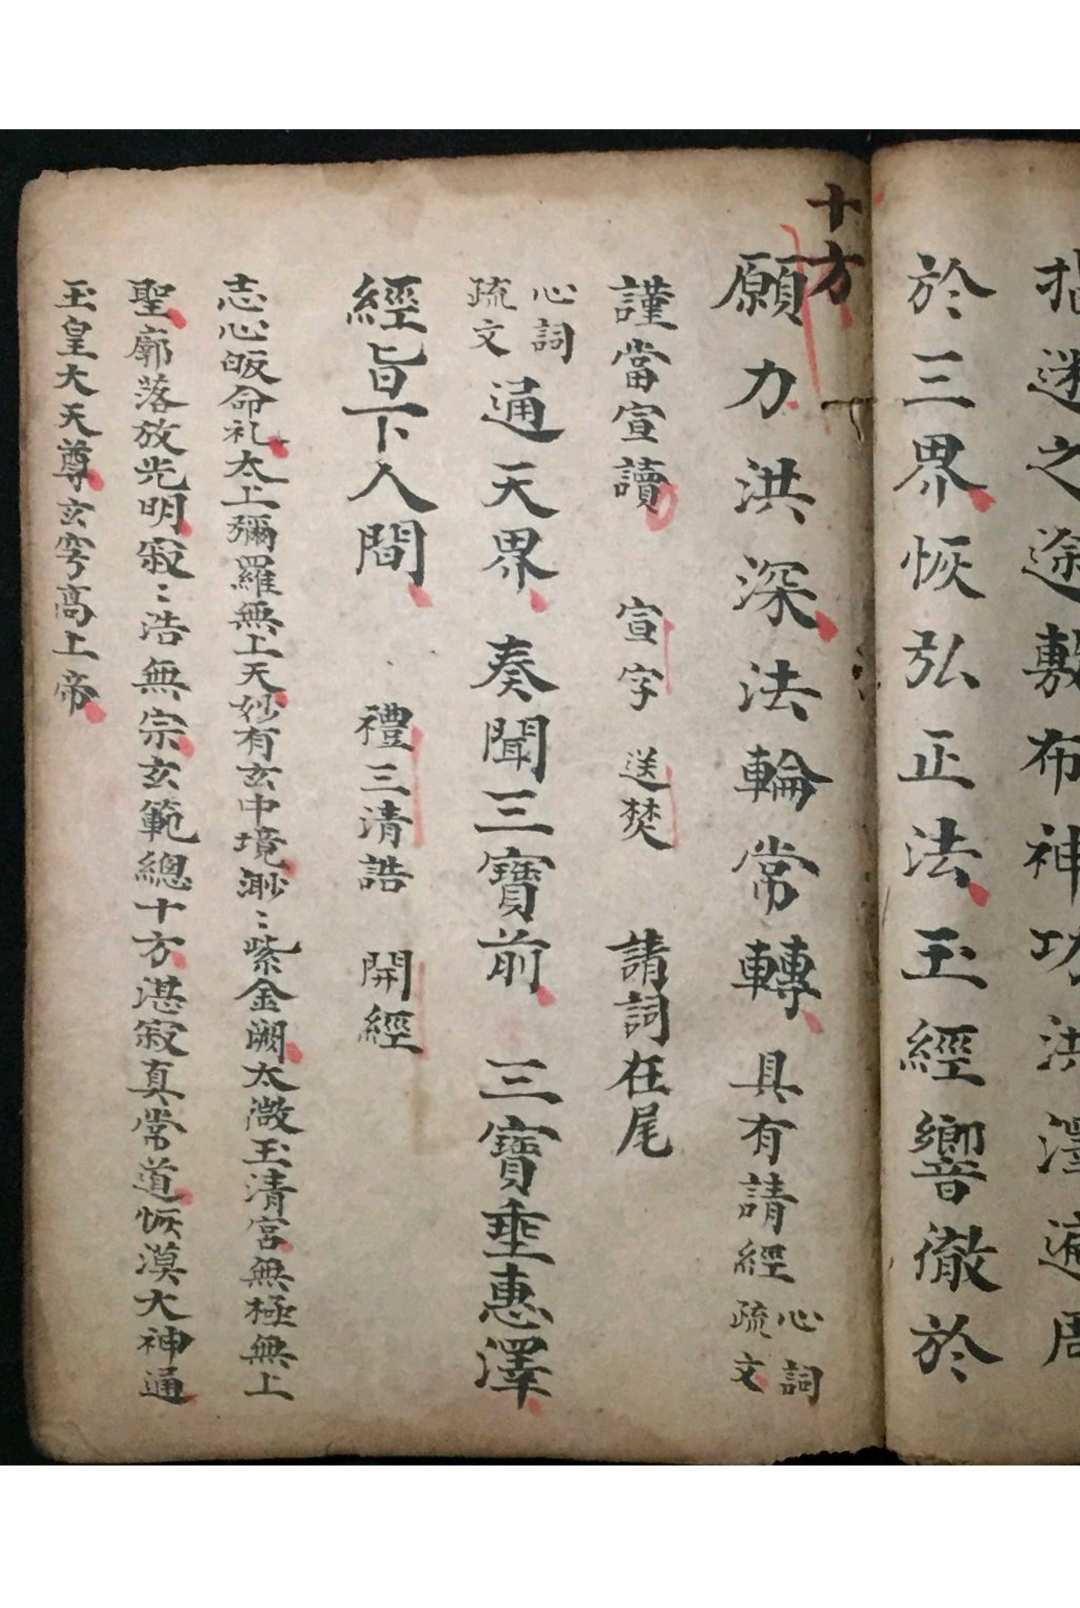 指迷之途敷布神功洪澤遍周
於三界恢弘正法玉經響徹於
十方
願力洪深法輪常轉具有請經心詞疏文
謹當宣讀 宣字 送焚 請詞在尾
心詞疏文通天界奏聞三寶前 三寶垂惠澤
經旨下人間 禮三清誥 開經
志心皈命礼太上彌羅無上天妙有玄中境渺〻紫金闕太微玉清宮無極無上
聖廓落放光明寂〻浩無宗玄範總十方湛寂真常道恢漠大神通
玉皇大天尊玄穹高上帝